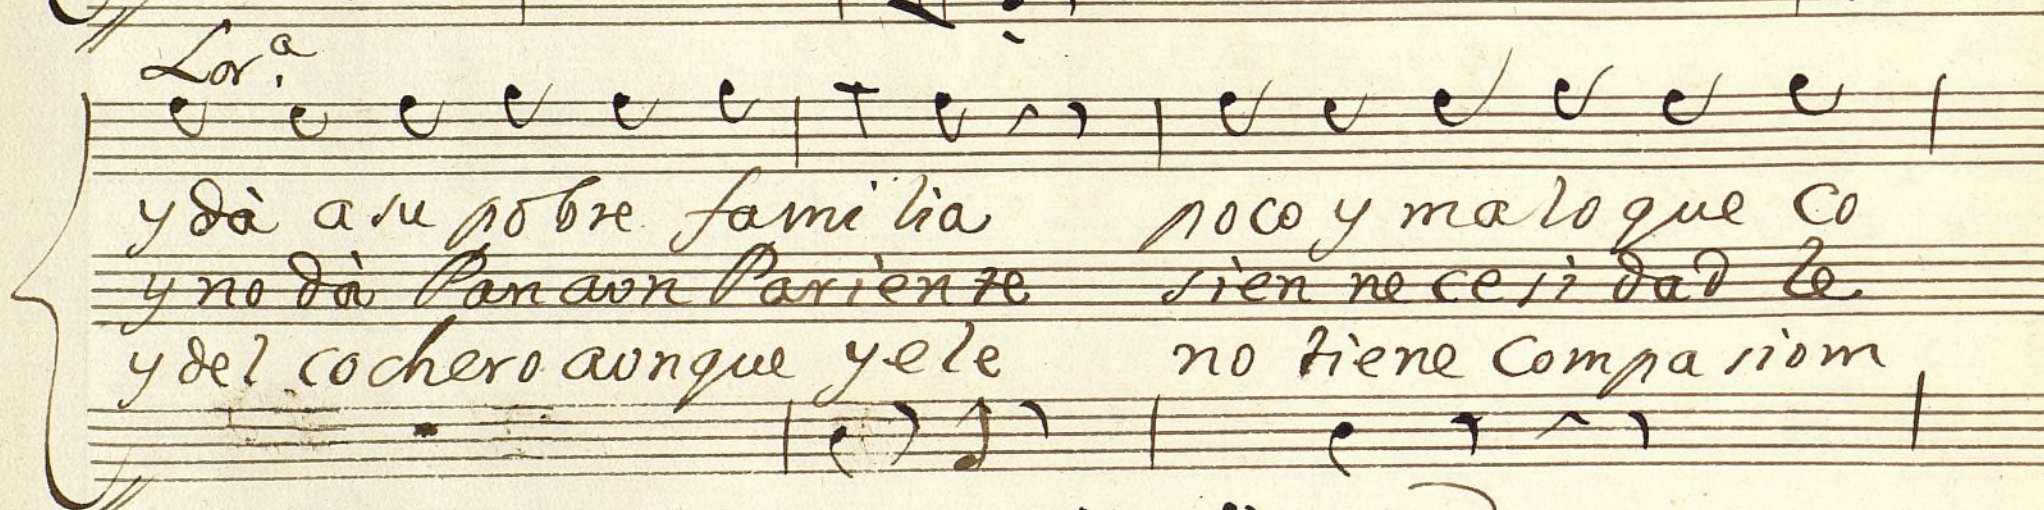 Lor.ª
y dà a su pobre familia poco y malo que co
y no dà Pan aun Pariente si en necesidad le
y del cochero aunque yele no tiene Compasiom